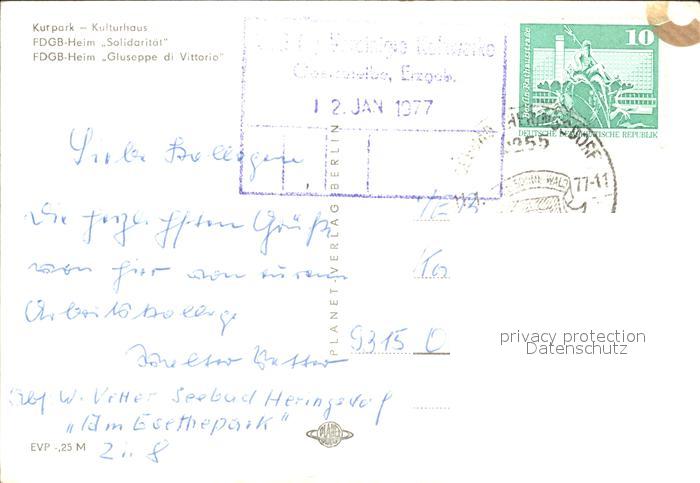 Kurpark – Kulturhaus
FDGB-Heim „Solidarität“
FDGB-Heim „Giuseppe di Vittorio“
Erzgeb.
12. JAN 1977
10
Berlin Rathausstraße
DEUTSCHE DEMOKRATISCHE REPUBLIK
1255
77-11
Liebe Kollegen
Die herzlichsten Grüße
von hier von eurem
Arbeitskollege
Walter Vetter
PLANET-VERLAG BERLIN
9315 O
privacy protection
Datenschutz
Abs W. Vetter Seebad Heringsdorf
„Am Goethepark“
Zi. 8
PLANET
EVP -,25 M